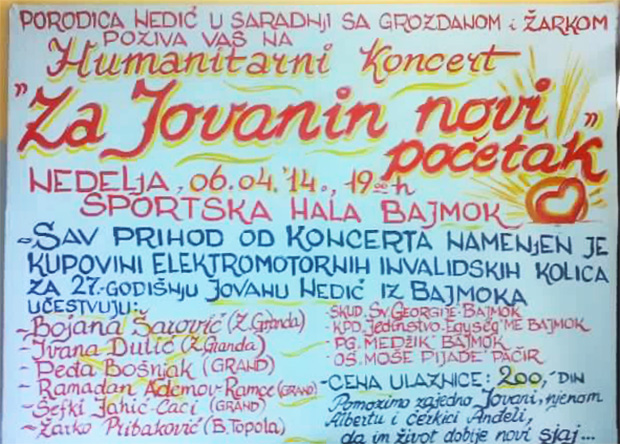 PORODICA NEDIĆ U SARADNJI SA GROZDANOM i ŽARKOM
POZIVA VAS NA
Humanitarni koncert
"Za Jovanin novi
početak"
NEDELJA, 06.04.'14., 19⁰⁰h
SPORTSKA HALA BAJMOK
- SAV PRIHOD OD KONCERTA NAMENJEN JE
KUPOVINI ELEKTROMOTORNIH INVALIDSKIH KOLICA
ZA 27-GODIŠNJU JOVANU NEDIĆ IZ BAJMOKA
UČESTVUJU:
- Bojana Šarović (Z. Granda)
- Ivana Dulić (Z. Granda)
- Peđa Bošnjak (GRAND)
- Ramadan Ademov-Ramce (GRAND)
- Šefki Jahić-Caci (GRAND)
- Žarko Pribaković (B. Topola)
- SKUD. Sv. GEORGIJE-BAJMOK
- KPD. Jedinstvo-Egység'ME BAJMOK
- PG. MEDŽIK BAJMOK
- OŠ. MOŠE PIJADE PAČIR
- CENA ULAZNICE: 200,- DIN
Pomozimo zajedno Jovani, njenom
Albertu i ćerkici Anđeli,
da im život dobije novi sjaj...